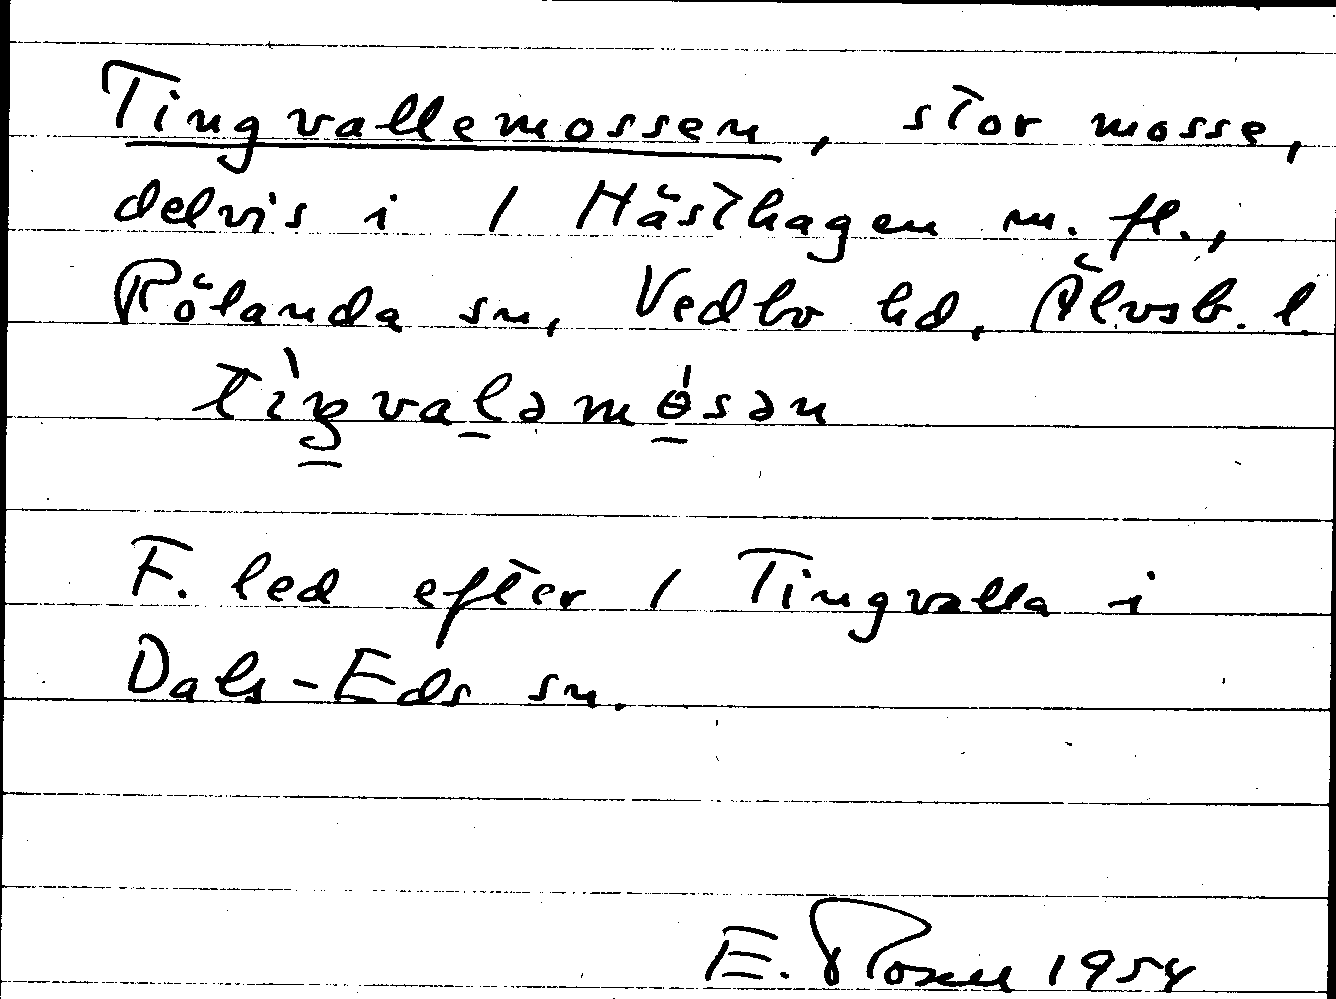 Tingvallemossen, stor mosse,
delvis i 1 Hästhagen m. fl.,
Rölanda sn, Vedbo hd, Älvsb. l.
tìŋvaləmɵ́sən
F. led efter 1 Tingvalla i
Dals-Eds sn.
E. Rosell 1954